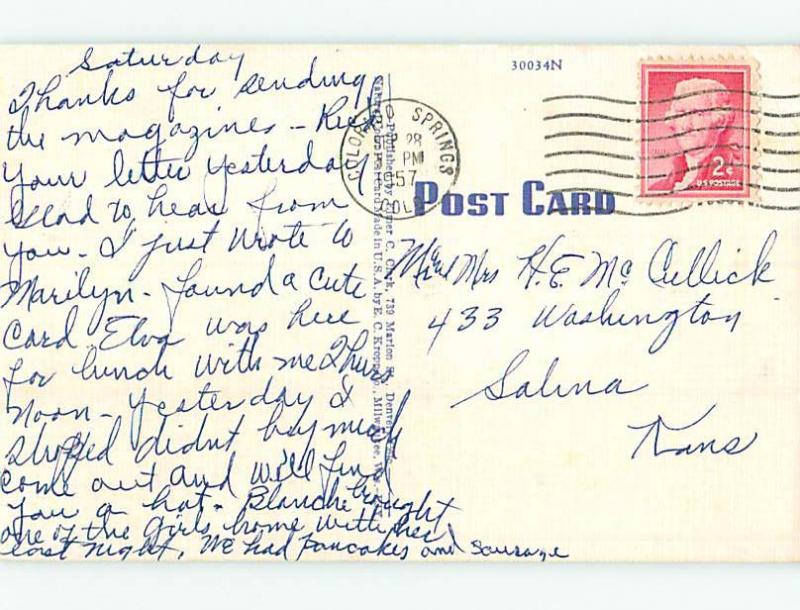 Saturday
Thanks for sending
the magazines - Rec'd
your letter yesterday
Glad to hear from
you - I just wrote to
Marilyn - found a cute
card Elva was here
for lunch with me Thurs
noon - yesterday I
shopped didnt buy much
come out and we'll find
you a hat - Blanche brought
one of the girls home with her
last night, We had pancakes and sausage
Published by C. Clark, 739 Marion St., Denver
Post Card Made in U.S.A. by E. C. Kropp Co., Milwaukee, Wis.
30034N
COLORADO SPRINGS
SEP 28
PM
1957
COLO
2¢
U.S. POSTAGE
POST CARD
Mr and Mrs H. E. McCullick
433 Washington
Salina
Kans